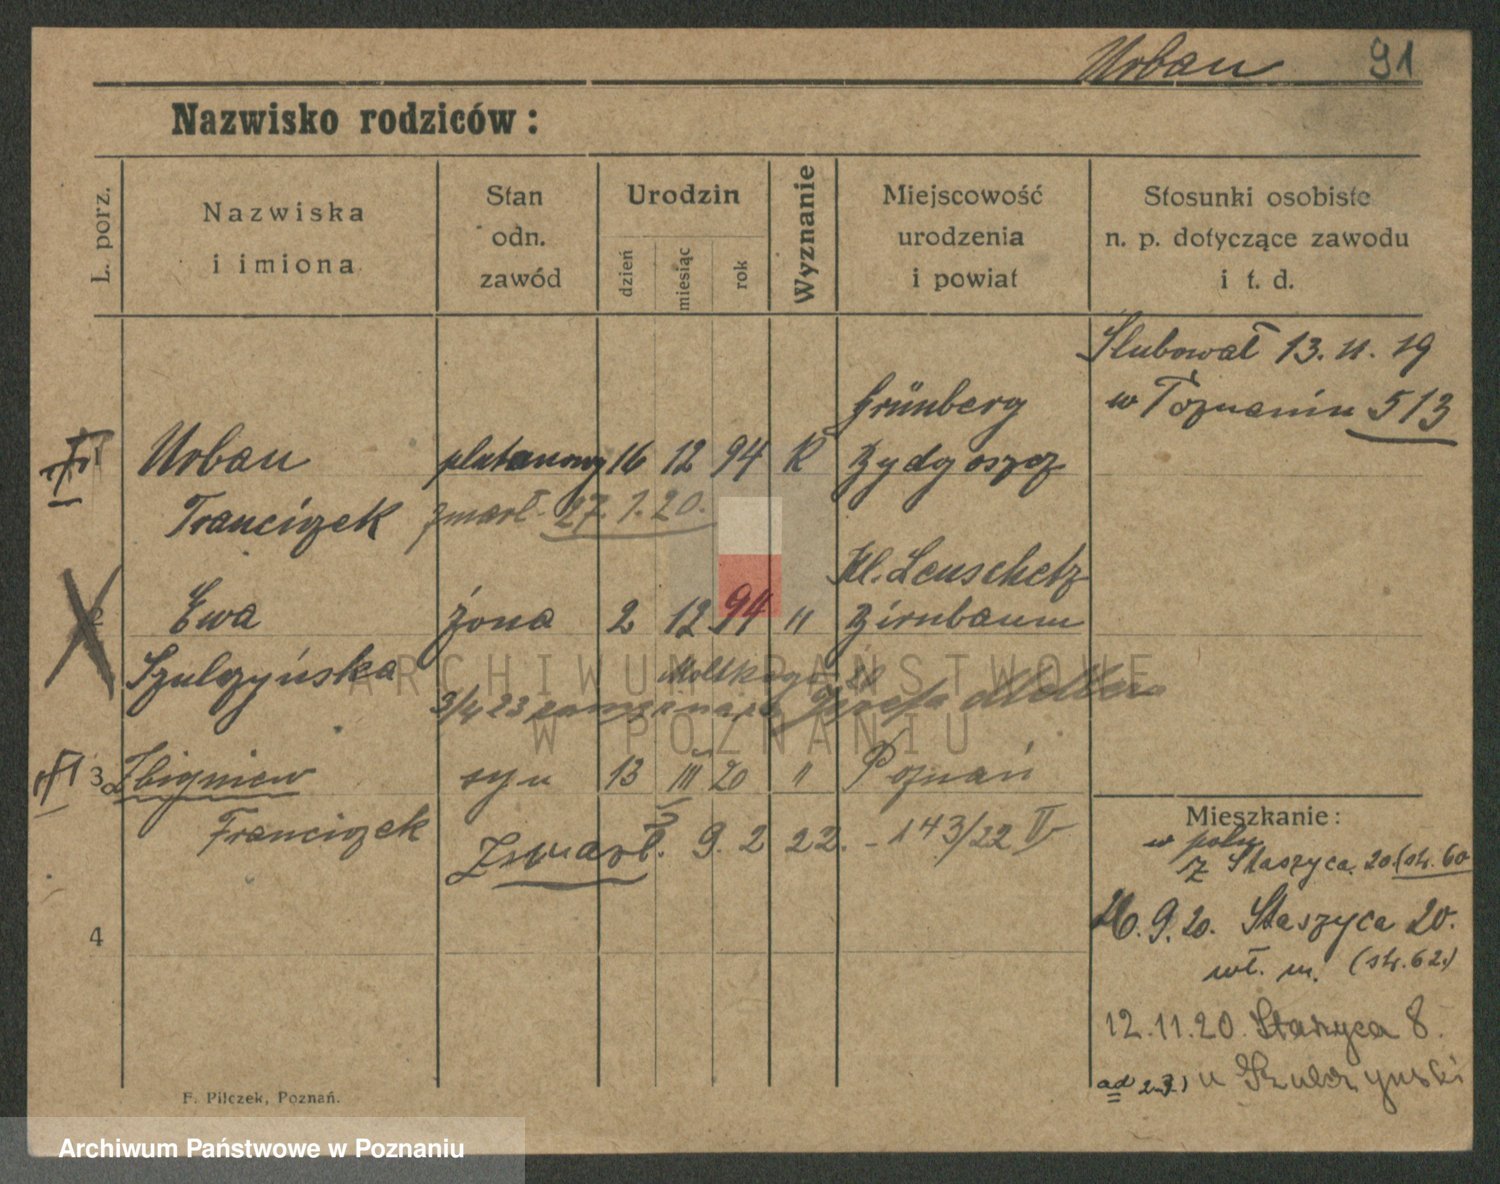 Urban 91
Nazwisko rodziców:
L. porz.
Nazwiska
i imiona
Stan
odn.
zawód
Urodzin
dzień
miesiąc
rok
Wyznanie
Miejscowość
urodzenia
i powiat
Stosunki osobiste
n. p. dotyczące zawodu
i t. d.
Ślubował 13. 11. 19
w Poznaniu 513
Grünberg
1 Urban plutonowy 16 12 94 K Bydgoszcz
Franciszek zmarł 27. 1. 20.
Kl. Leuschetz
2 Ewa żona 2 12 94 " Birnbaum
Szulczyńska
3/4 23 Józefa
3 Zbigniew syn 13 III 20 " Poznań
Franciszek Zmarł. 9. 2 22. - 143/22 V
4
Mieszkanie:
w polu
z Staszyca 20 (str. 60
26. 9. 20. Staszyca 20.
wł. m. (str. 62.)
12. 11. 20. Staszyca 8.
ad 2.3) u Szulczyński
F. Pilczek, Poznań.
ARCHIWUM PAŃSTWOWE
W POZNANIU
Archiwum Państwowe w Poznaniu